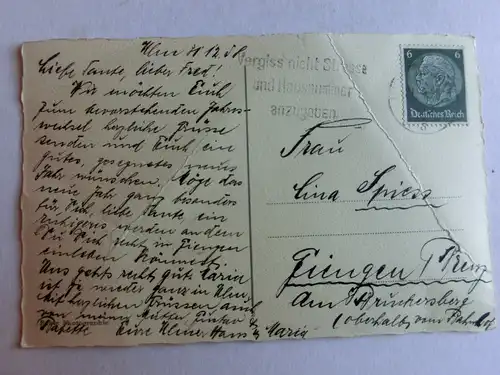 Ulm 30.12.36
Liebe Tante, lieber Fred!
Wir möchten Euch
zum bevorstehenden Jahres-
wechsel herzliche Grüsse
senden und Euch ein
gutes, gesegnetes neues
Jahr wünschen. Möge das
neue Jahr ganz besonders
für Dich, liebe Tante, ein
ruhigeres werden an dem
Du Dich jetzt in Giengen
einleben kannst.
Uns geht's recht gut. Maria
ist ja wieder ganz in Ulm.
Mit herzlichen Grüssen auch
von meiner Mutter, Gustav
Babette Eure Ulmer Hans u. Maria
Vergiss nicht Strasse
und Hausnummer
anzugeben.
6 6
Deutsches Reich
Frau
Lina Spiess
Giengen Brenz
Am Bruckersberg
(oberhalb vom Bahnhof